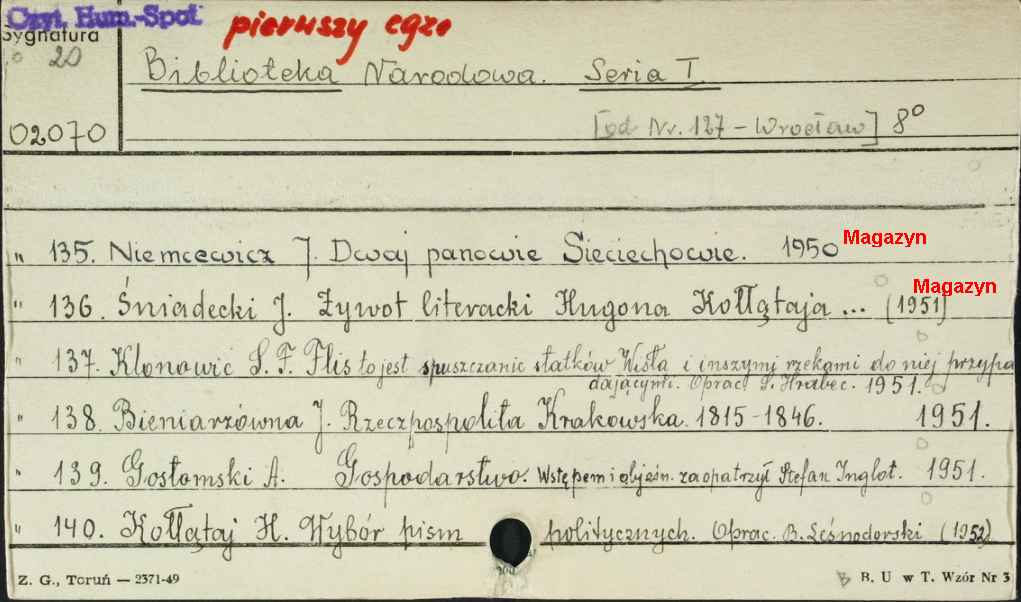 Czyt. Hum.-Społ
pierwszy egz.
Sygnatura
20
Biblioteka Narodowa. Seria I
02070
[od Nr. 127 - Wrocław] 8°
" 135. Niemcewicz J. Dwaj panowie Sieciechowie. 1950 Magazyn
Magazyn
" 136. Śniadecki J. Żywot literacki Hugona Kołłątaja ... (1951)
" 137. Klonowic S. F. Flis to jest spuszczanie statków Wisłą i inszymi rzekami do niej przypa
dającymi. Oprac. S. Hrabec. 1951.
" 138. Bieniarzówna J. Rzeczpospolita Krakowska. 1815-1846. 1951.
" 139. Gostomski A. Gospodarstwo. Wstępem i objaśn. zaopatrzył Stefan Inglot. 1951.
" 140. Kołłątaj H. Wybór pism politycznych. Oprac. B. Leśnodorski (1952)
Z. G., Toruń — 2371-49
B. U w T. Wzór Nr 3